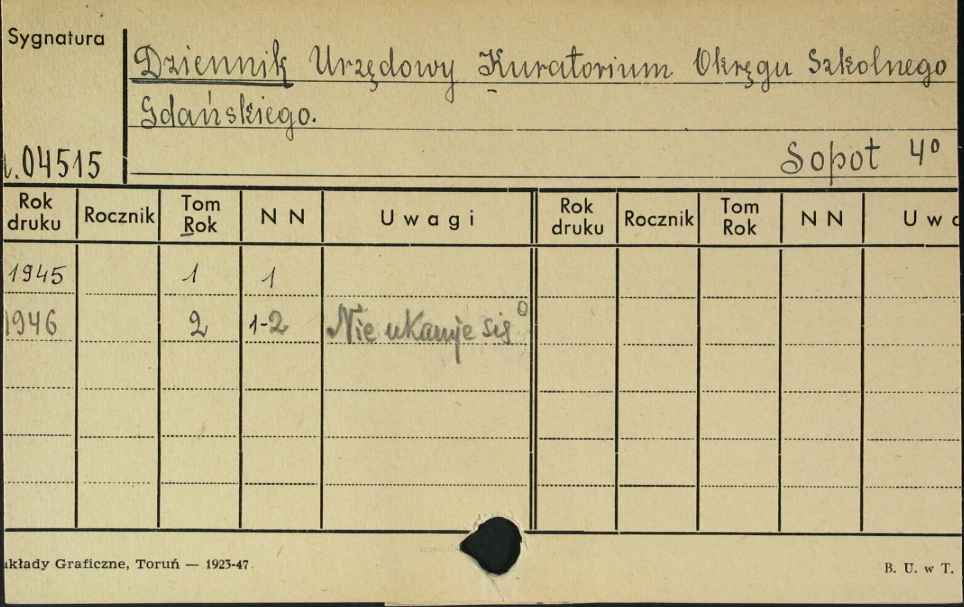 Sygnatura
Dziennik Urzędowy Kuratorium Okręgu Szkolnego
Gdańskiego.
.04515
Sopot 4°
Rok druku Rocznik Tom Rok N N Uwagi Rok druku Rocznik Tom Rok N N Uwa
1945 1 1
1946 2 1-2 Nie ukazuje się
kłady Graficzne, Toruń — 1923-47.
B. U. w T.